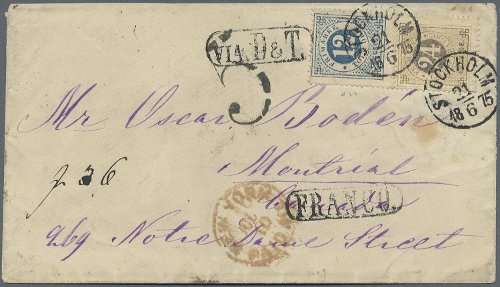 VIA D&T.
12
24
STOCKHOLM
21
18 6 75
STOCKHOLM
21
18 6 75
5
Mr Oscar Bodén
Montréal
Canada
FRANCO.
269 Notre Dame Street
NEW YORK